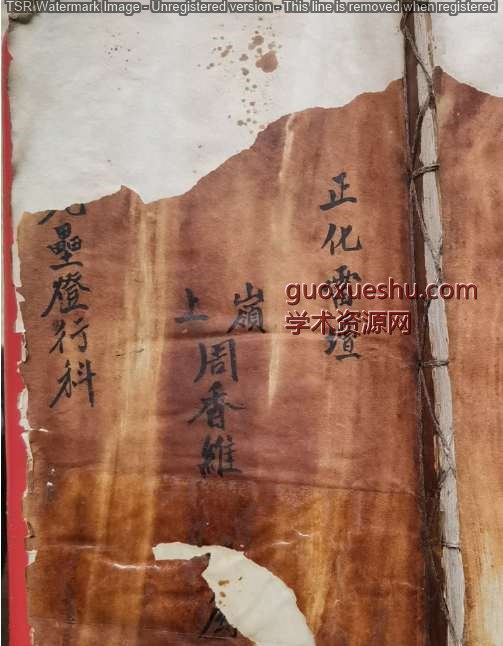 TSR Watermark Image - Unregistered version - This line is removed when registered
正化雷壇
嶺
上
周香維
壘燈行科
guoxueshu.com
学术资源网